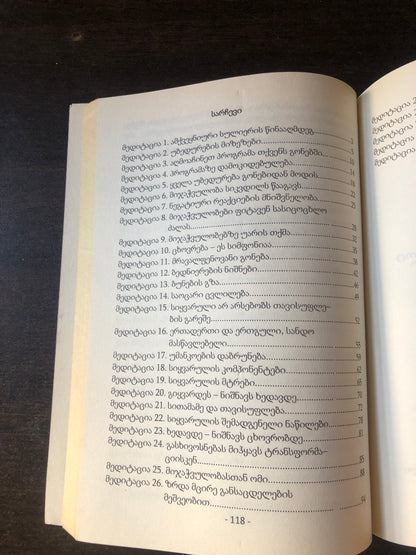 სარჩევი
მედიტაცია 1. ამქვეყნიური სულიერის წინააღმდეგ 3
მედიტაცია 2. უბედურების მიზეზები
მედიტაცია 3. აღმოაჩინეთ პროგრამა თქვენს გონებაში 10
მედიტაცია 4. პროგრამაზე დამოკიდებულება 14
მედიტაცია 5. ყველა უბედურება გონებიდან მოდის 16
მედიტაცია 6. მიჯაჭვულობა სიკვდილს წააგავს 21
მედიტაცია 7. ნეგატიური რეაქციების მნიშვნელობა 25
მედიტაცია 8. მიჯაჭვულობები ფიტავენ სასიცოცხლო
ძალას 28
მედიტაცია 9. მიჯაჭვულობებზე უარის თქმა 32
მედიტაცია 10. ცხოვრება – ეს სიმფონიაა 35
მედიტაცია 11. მრავალფეროვანი გონება 38
მედიტაცია 12. ბედნიერების ნიშნები 42
მედიტაცია 13. ბუნების გზა 46
მედიტაცია 14. საოცარი ცვლილება 49
მედიტაცია 15. სიყვარული არ არსებობს თავისუფლე-
ბის გარეშე 52
მედიტაცია 16. ერთადერთი და ერთგული, სანდო
მასწავლებელი 55
მედიტაცია 17. უმანკოების დაბრუნება 59
მედიტაცია 18. სიყვარულის კომპონენტები 62
მედიტაცია 19. სიყვარულის მტრები 65
მედიტაცია 20. გიყვარდეს – ნიშნავს ხედავდე 70
მედიტაცია 21. სითამამე და თავისუფლება 72
მედიტაცია 22. სიყვარულის შემადგენელი ნაწილები 78
მედიტაცია 23. ხედავდე – ნიშნავს ცხოვრობდე 81
მედიტაცია 24. გასხივოსნებას მიჰყავს ტრანსფორმა-
ციისკენ 85
მედიტაცია 25. მიჯაჭვულობასთან ომი 88
მედიტაცია 26. ზრდა მცირე განსაცდელების
მეშვეობით 94
- 118 -